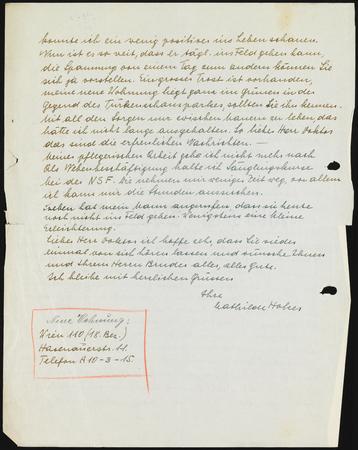 konnte ich ein wenig positives ins Leben schauen.
Nun ist es so weit, dass er tägl. ins Feld gehen kann,
die Spannung von einem Tag zum andern können Sie
sich ja vorstellen. Ein grosser Trost ist vorhanden,
meine neue Wohnung liegt ganz im grünen in der
Gegend des Türkenschanzparkes, sollten Sie ihn kennen.
Mit all den Sorgen nur zwischen mauern zu leben, das
hätte ich nicht lange ausgehalten. So lieber Herr Doktor
das sind die erfreulichen Nachrichten. —
meiner pflegerischen Arbeit gehe ich nicht mehr nach
Als Nebenbeschäftigung halte ich Säuglingskurse
bei der N S F. Die nehmen mir weniger Zeit weg, vor allem
ich kann mir die Stunden aussuchen.
Soeben hat mein mann angerufen, dass sie heute
noch nicht ins Feld gehen. Wenigstens eine kleine
erleichterung.
Lieber Herr Doktor ich hoffe sehr, dass Sie wieder
einmal von sich hören lassen und wünsche Ihnen
und Ihrem Herrn Bruder alles, alles gute.
Ich bleibe mit herzlichen Grüssen
Ihre
Mathilde
Neue Wohnung:
Wien 110 (18. Bez.)
Hasenauerstr. 14.
Telefon A 10 - 3 - 15